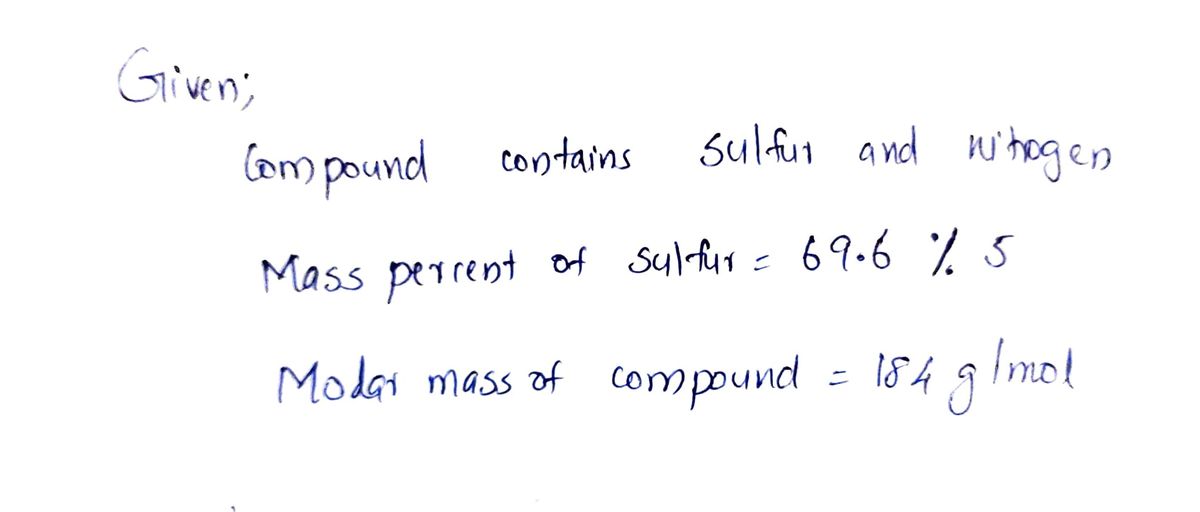 Given;
Compound contains sulfur and nitrogen
Mass percent of sulfur = 69.6 % S
Molar mass of compound = 184 g/mol